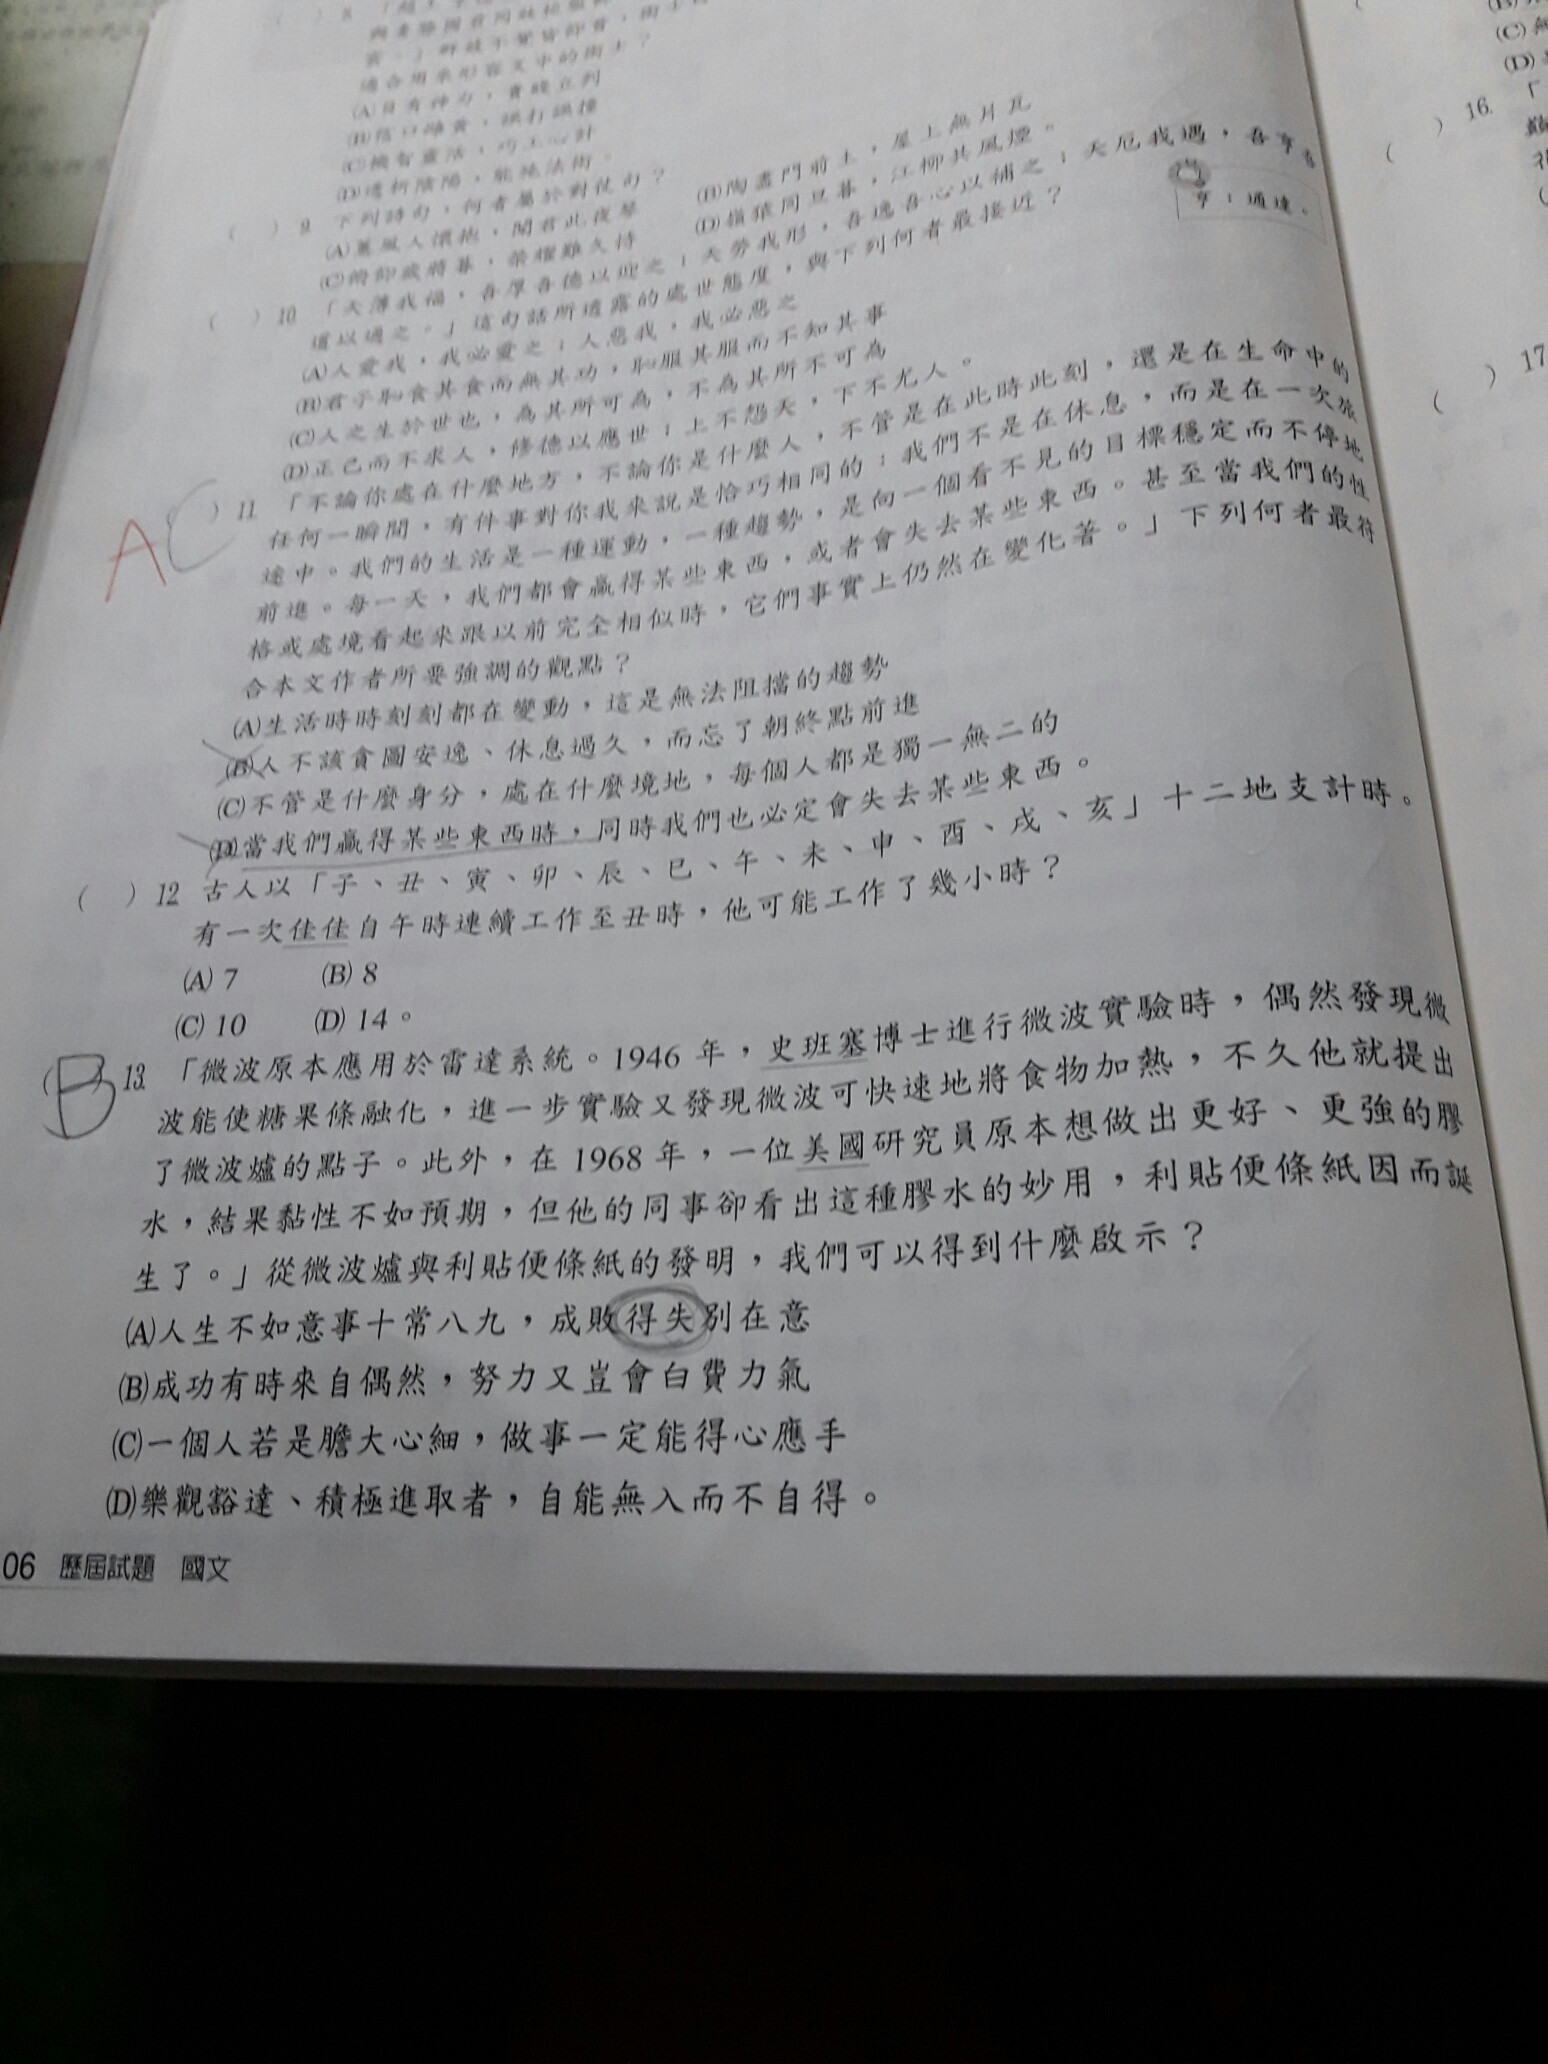 適合用來形容文中的術士？
(A)目有神力，貴賤立判
(B)信口雌黃，誤打誤撞
(C)機智靈活，巧工心計
(D)透析陰陽，能施法術。
( ) 9. 下列詩句，何者屬於對仗句？
(A)蕙風人懷抱，聞君此夜琴 (B)陶盡門前土，屋上無片瓦
(C)俯仰歲將暮，榮耀難久恃 (D)嶺猿同旦暮，江柳共風煙。
( ) 10. 「天薄我福，吾厚吾德以迎之；天勞我形，吾逸吾心以補之；天厄我遇，吾亨吾
道以通之。」這句話所透露的處世態度，與下列何者最接近？
亨：通達。
(A)人愛我，我必愛之；人惡我，我必惡之
(B)君子恥食其食而無其功，恥服其服而不知其事
(C)人之生於世也，為其所可為，不為其所不可為
(D)正己而不求人，修德以應世；上不怨天，下不尤人。
AC ) 11. 「不論你處在什麼地方，不論你是什麼人，不管是在此時此刻，還是在生命中的
任何一瞬間，有件事對你我來說是恰巧相同的：我們不是在休息，而是在一次旅
途中。我們的生活是一種運動，一種趨勢，是向一個看不見的目標穩定而不停地
前進。每一天，我們都會贏得某些東西，或者會失去某些東西。甚至當我們的性
格或處境看起來跟以前完全相似時，它們事實上仍然在變化著。」下列何者最符
合本文作者所要強調的觀點？
(A)生活時時刻刻都在變動，這是無法阻擋的趨勢
(B)人不該貪圖安逸、休息過久，而忘了朝終點前進
(C)不管是什麼身分，處在什麼境地，每個人都是獨一無二的
(D)當我們贏得某些東西時，同時我們也必定會失去某些東西。
( ) 12. 古人以「子、丑、寅、卯、辰、巳、午、未、申、酉、戌、亥」十二地支計時。
有一次佳佳自午時連續工作至丑時，他可能工作了幾小時？
(A) 7 (B) 8
(C) 10 (D) 14。
(B) 13. 「微波原本應用於雷達系統。1946 年，史班塞博士進行微波實驗時，偶然發現微
波能使糖果條融化，進一步實驗又發現微波可快速地將食物加熱，不久他就提出
了微波爐的點子。此外，在 1968 年，一位美國研究員原本想做出更好、更強的膠
水，結果黏性不如預期，但他的同事卻看出這種膠水的妙用，利貼便條紙因而誕
生了。」從微波爐與利貼便條紙的發明，我們可以得到什麼啟示？
(A)人生不如意事十常八九，成敗得失別在意
(B)成功有時來自偶然，努力又豈會白費力氣
(C)一個人若是膽大心細，做事一定能得心應手
(D)樂觀豁達、積極進取者，自能無入而不自得。
06 歷屆試題 國文
(C)
(D)
( ) 16. 「
( ) 17